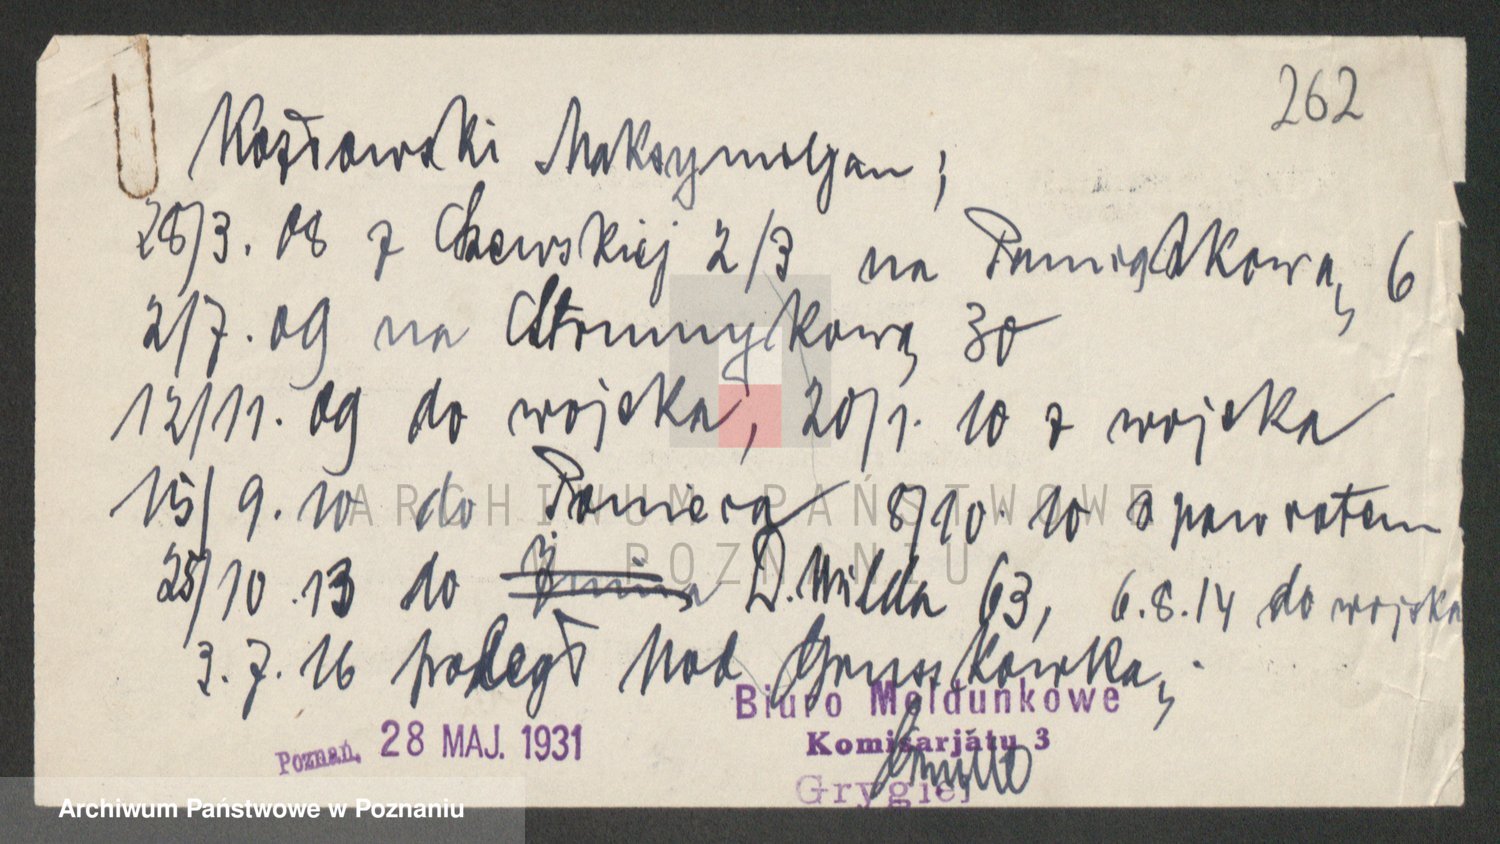 262
Kozłowski Maksymiljan;
28/3. 08 z Czewskiej 2/3 na Pamiątkową 6
2/7. 09 na Strumykową 30
12/11. 09 do wojska, 20/1. 10 z wojska
15/9. 10 do 8/10. 10 z powrotem
25/10. 13 do D. Wilda 63, 6.8.14 do wojska
3.7.16 poległ Nod
Poznań, 28 MAJ. 1931
Biuro Meldunkowe
Komisarjatu 3
Grygiel
ARCHIWUM PAŃSTWOWE
POZNANIU
Archiwum Państwowe w Poznaniu